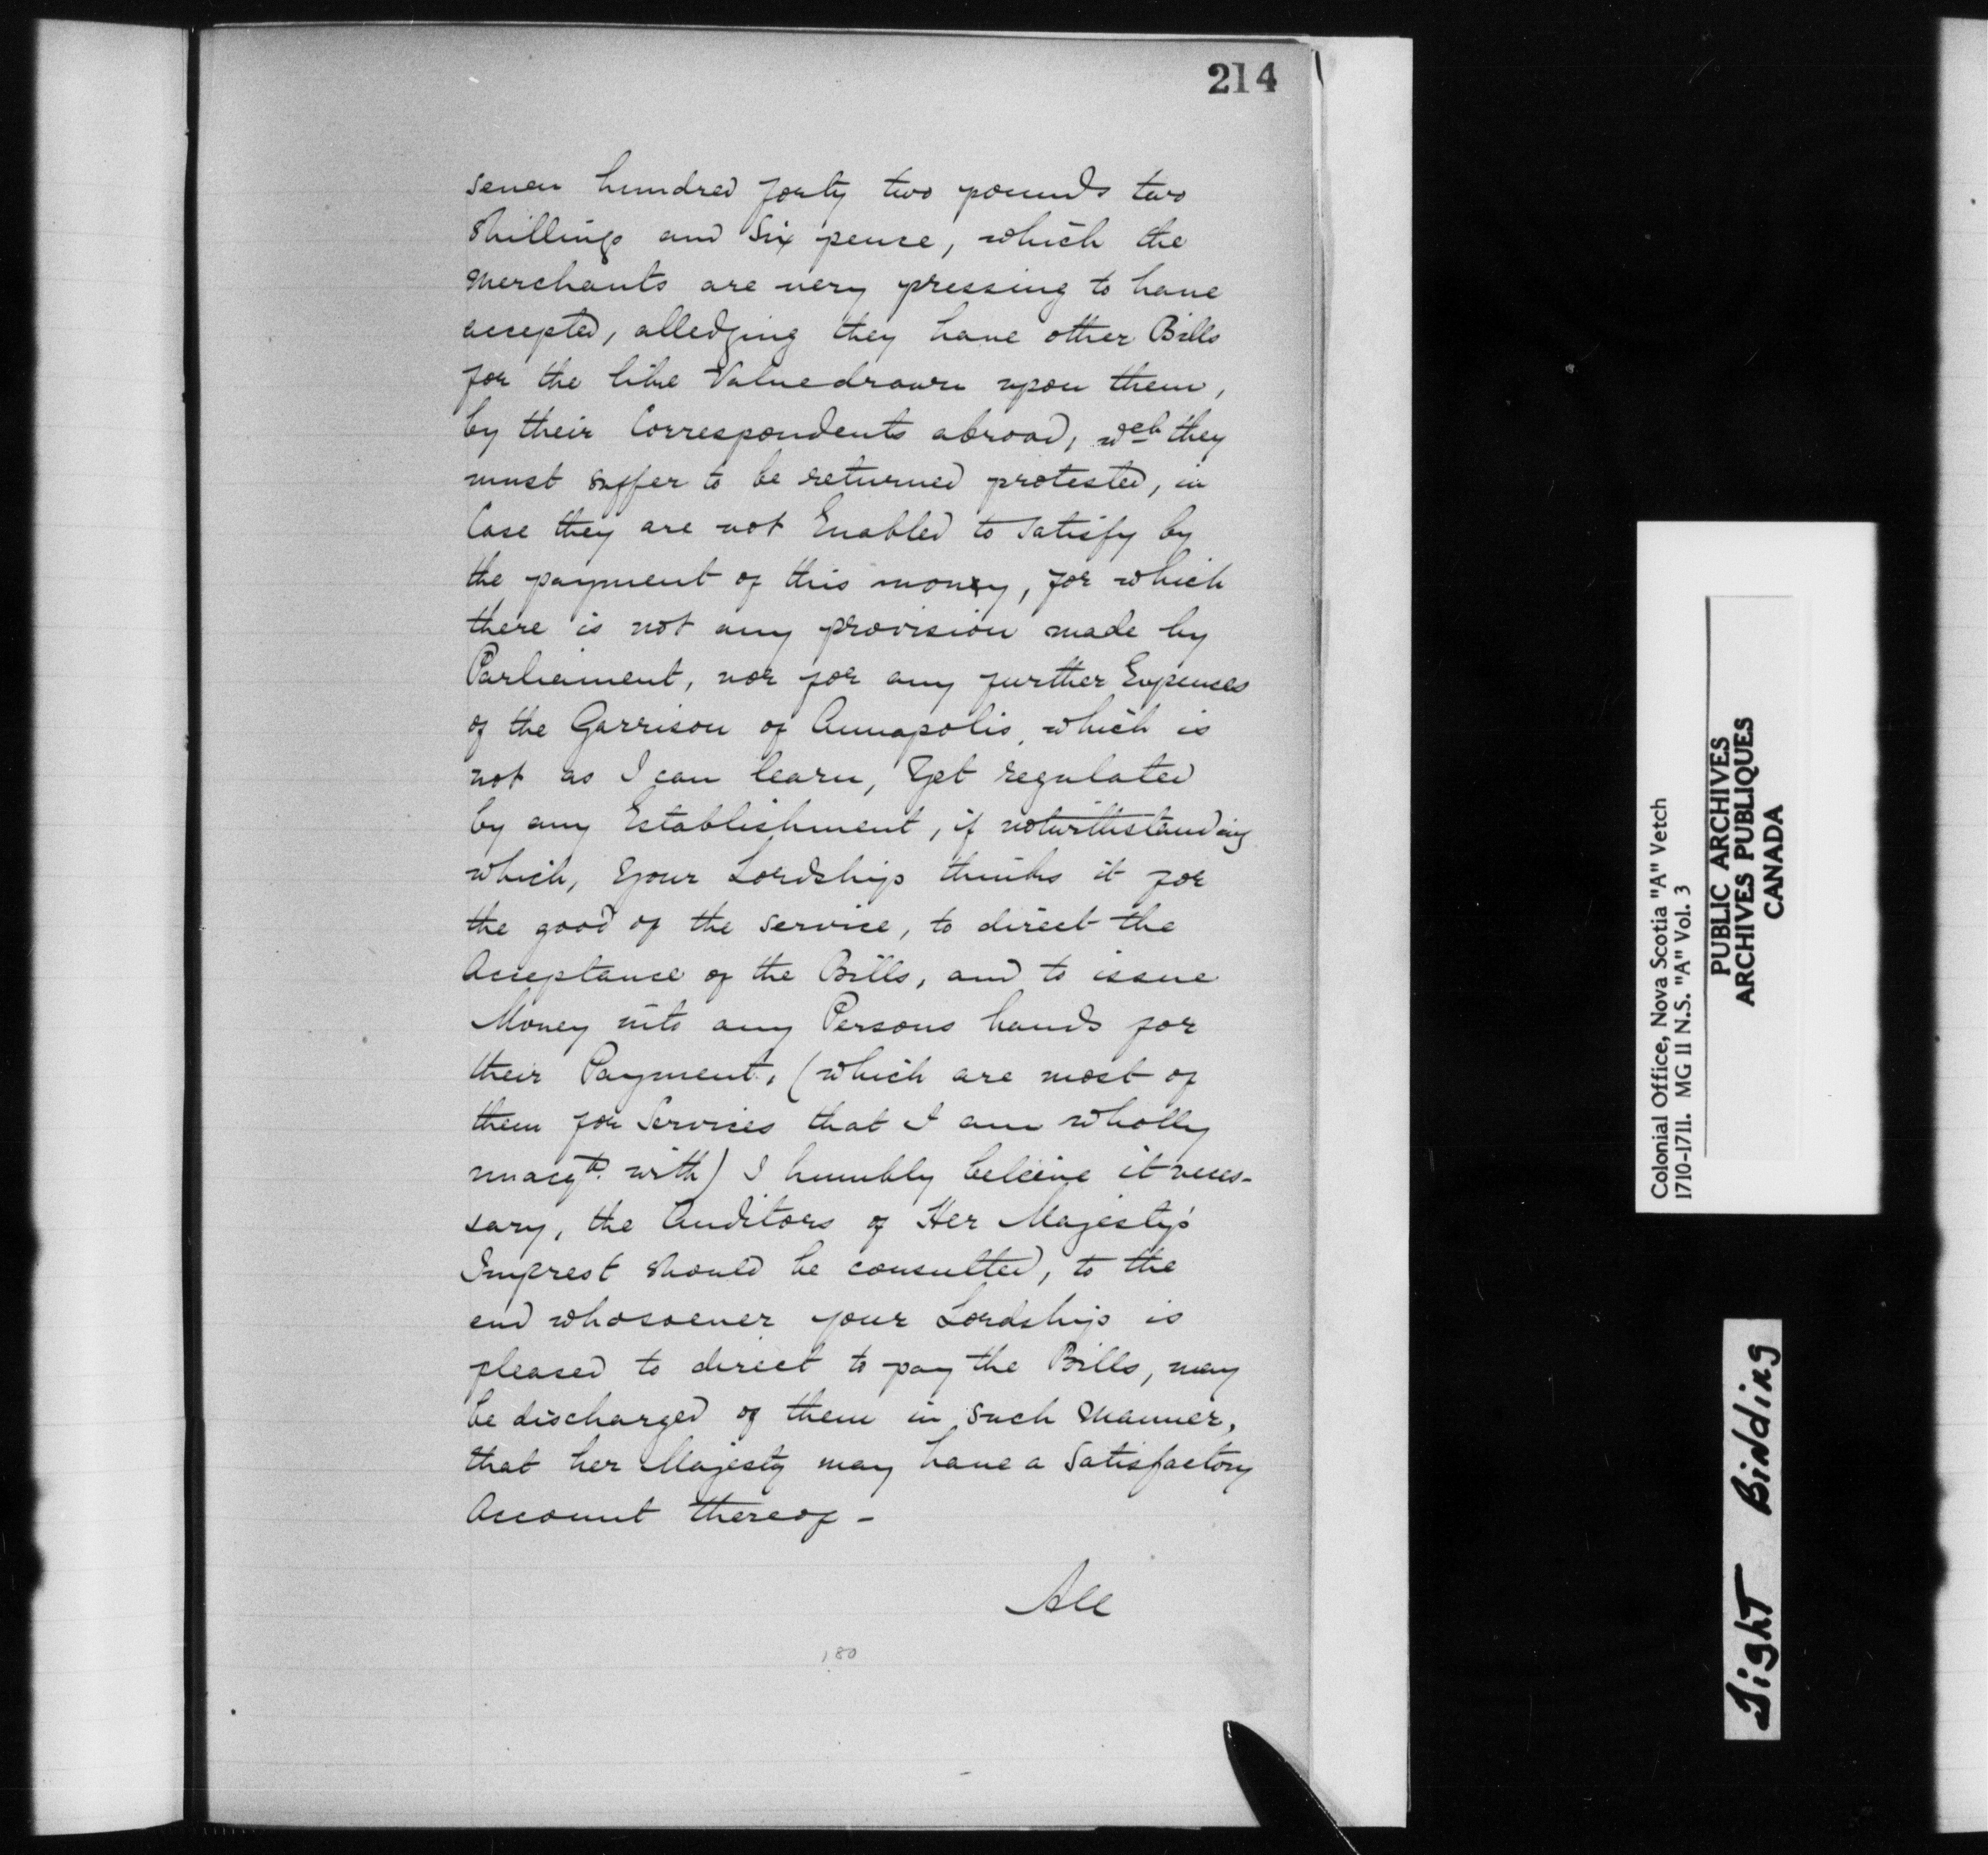 214
seven hundred forty two pounds two
Shillings and Six pence, which the
Merchants are very pressing to have
accepted, alledging they have other Bills
for the like Value drawn upon them,
by their Correspondents abroad, wch they
must suffer to be returned protested, in
Case they are not Enabled to Satisfy by
the payment of this money, for which
there is not any provision made by
Parliament, nor for any further Expences
of the Garrison of Annapolis, which is
not as I can learn, Yet regulated
by any Establishment, if notwithstanding
which, Your Lordship thinks it for
the good of the Service, to direct the
Acceptance of the Bills, and to issue
Money into any Persons hands for
their Payment, (which are most of
them for Services that I am wholly
unacqtd with) I humbly beleive it neces-
sary, the Auditors of Her Majesty's
Imprest should be consulted, to the
end whosoever your Lordship is
pleased to direct to pay the Bills, may
be discharged of them in Such Manner,
that her Majesty may have a Satisfactory
Account thereof -
All
180
Colonial Office, Nova Scotia "A" Vetch
1710-1711. MG 11 N.S. "A" Vol. 3
PUBLIC ARCHIVES
ARCHIVES PUBLIQUES
CANADA
Tight Bidding